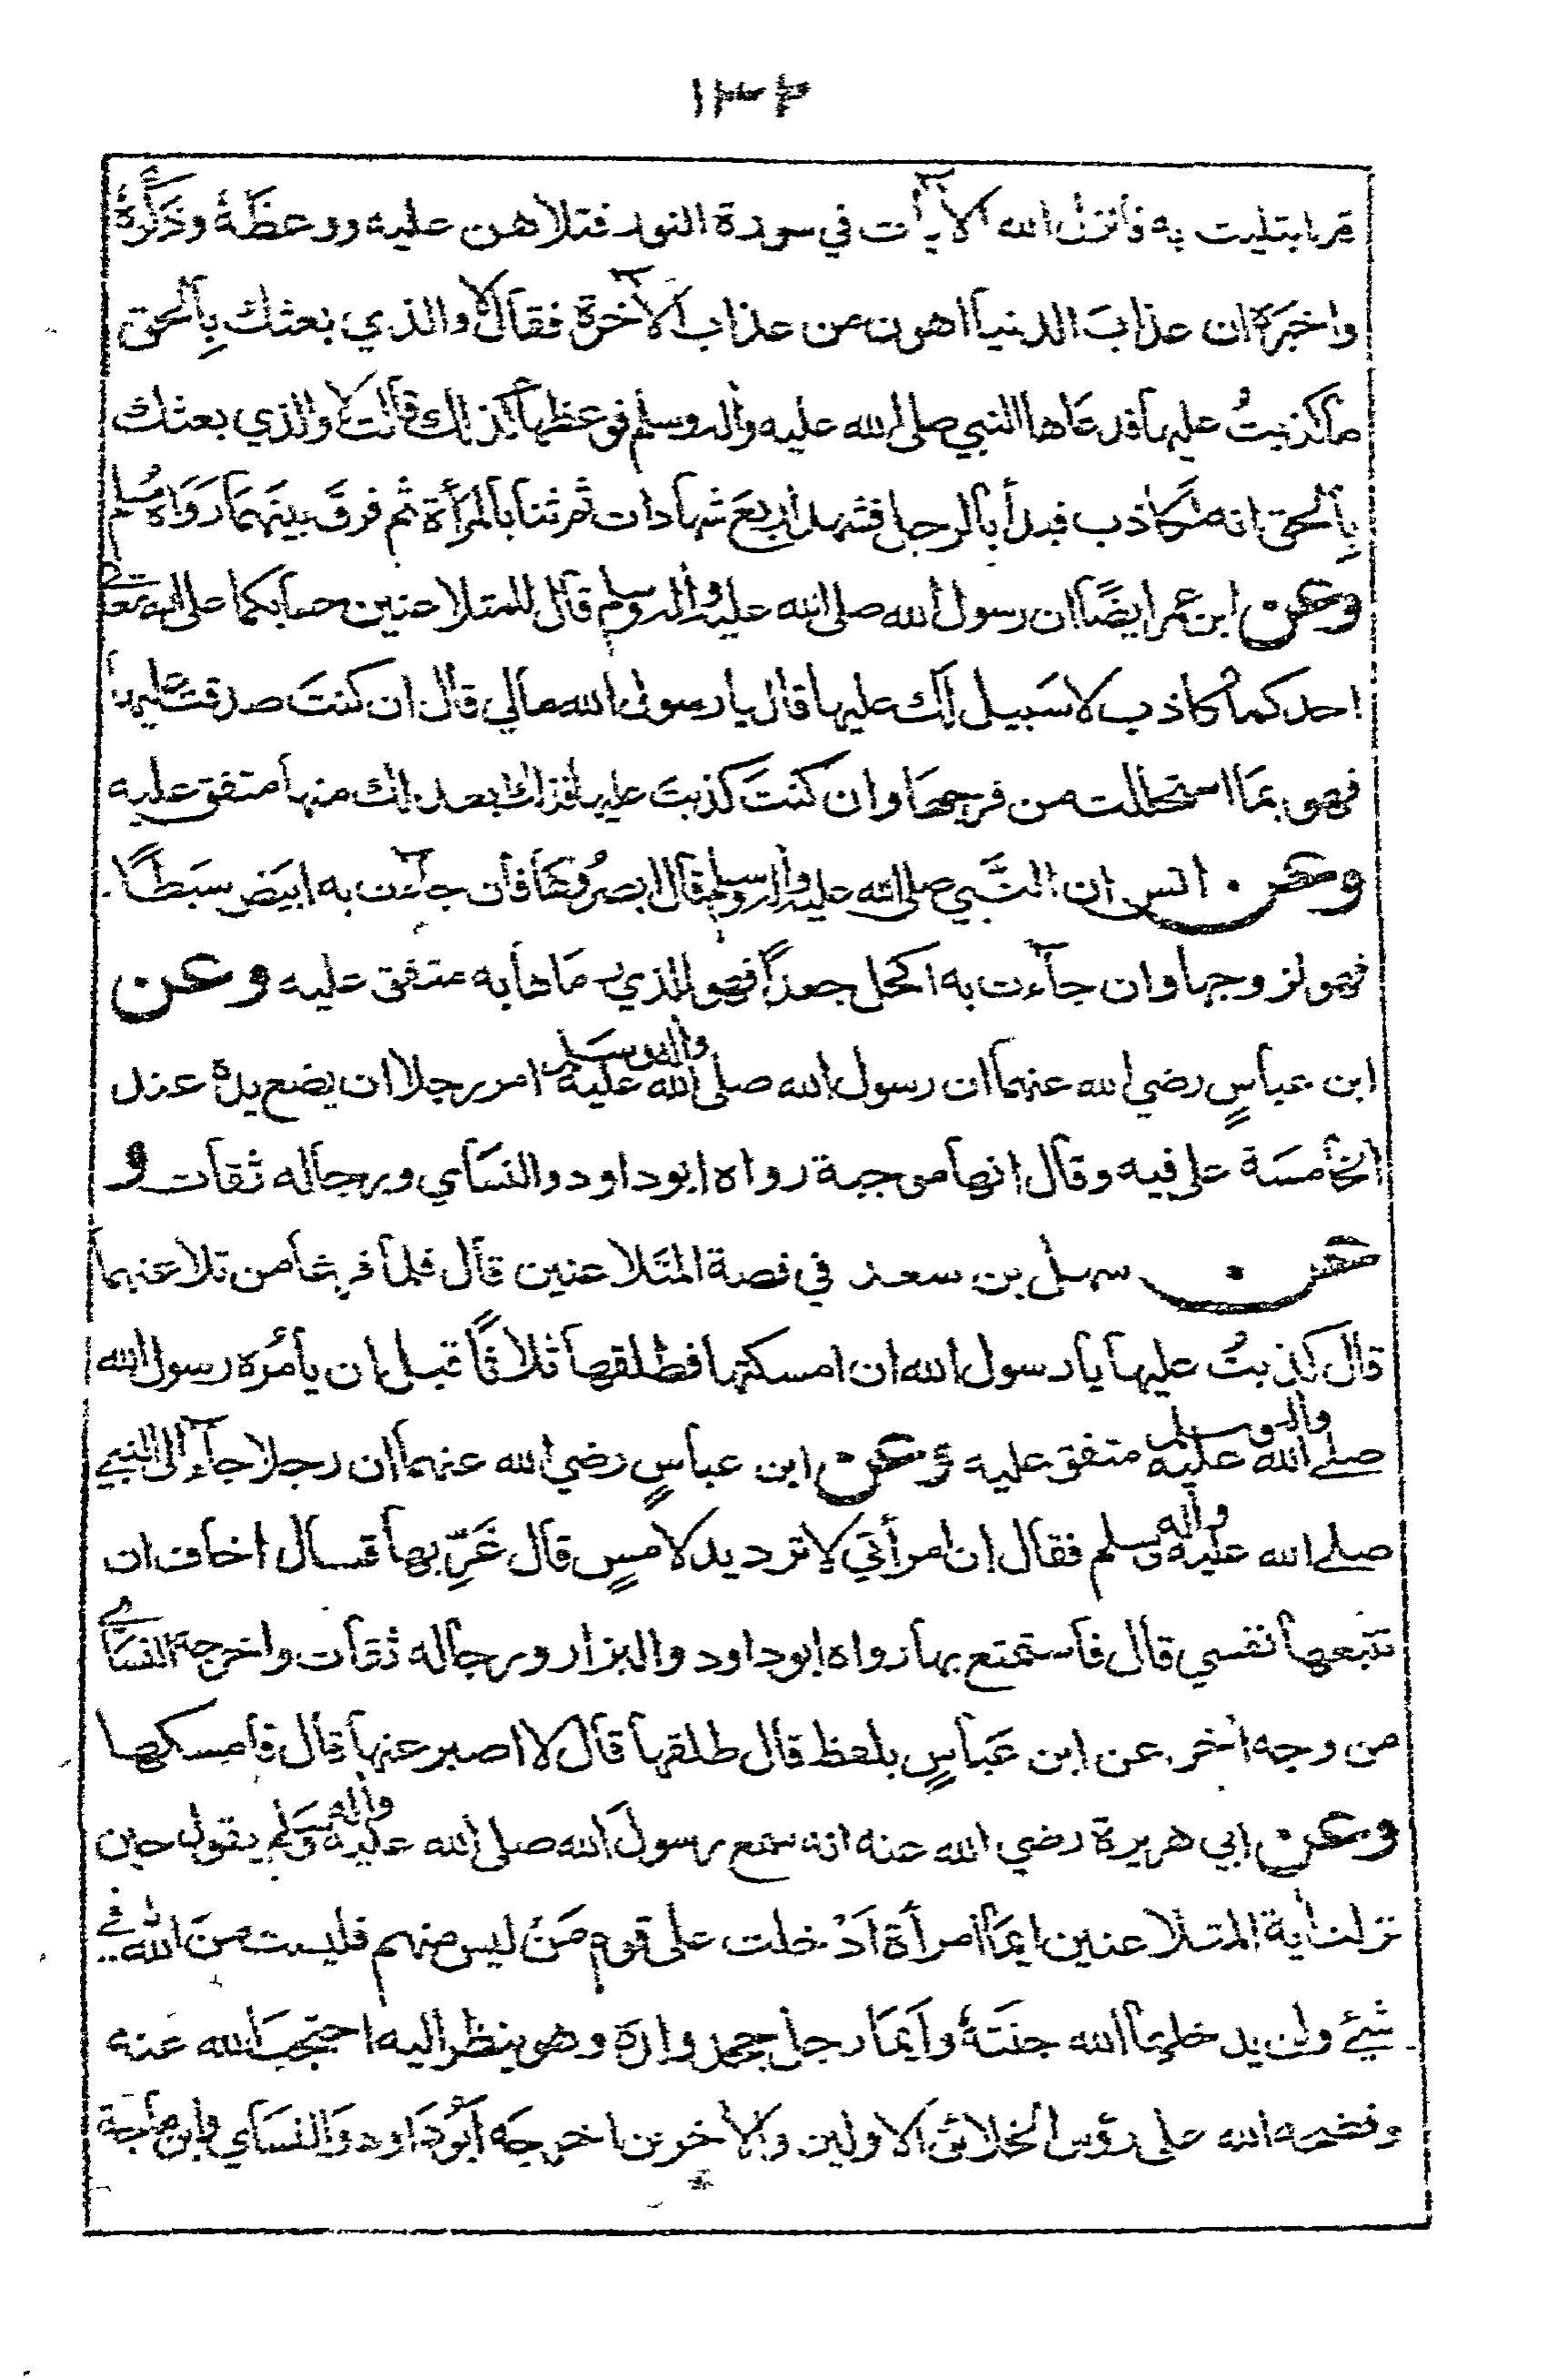 قد ابتليت به فأنزل الله الآيات في سورة النور فتلاهن عليه ووعظه وذكره
واخبره ان عذاب الدنيا اهون من عذاب الآخرة فقال لا والذي بعثك بالحق
ما كذبتُ عليها فدعاها النبي صلى الله عليه وآله وسلم فوعظها كذلك قالت لا والذي بعثك
بالحق انه لكاذب فبدأ بالرجل فشهد اربعَ شهادات ثم ثنا بالمرأة ثم فرقَ بينهما رواه مسلم
وعن ابن عمر ايضًا ان رسول الله صلى الله عليه وآله وسلم قال للمتلاعنين حسابكما على الله تعالى
احدكما كاذب لا سبيل لك عليها قال يا رسول الله مالي قال ان كنتَ صدقت عليها
فهو بما استحللت من فرجها وان كنتَ كذبتَ عليها فذاك ابعد لك منها متفق عليه
وعن انس ان النبي صلى الله عليه وآله وسلم قال ابصروها فأن جاءت به ابيض سبطًا
فهو لزوجها وان جاءت به اكحل جعدًا فهو للذي رماها به متفق عليه وعن
ابن عباسٍ رضي الله عنهما ان رسول الله صلى الله عليه وآله وسلم امر رجلا ان يضع يده عند
الخامسة على فيه وقال انها موجبة رواه ابو داود والنساي ورجاله ثقات و
عن سهل بن سعد في قصة المتلاعنين قال فلما فرغا من تلاعنهما
قال كذبتُ عليها يا رسول الله ان امسكتها فطلقها ثلاثًا قبل ان يأمُره رسول الله
صلى الله عليه وآله وسلم متفق عليه وعن ابن عباسٍ رضي الله عنهما ان رجلا جاء الى النبي
صلى الله عليه وآله وسلم فقال إن امرأتي لا ترد يد لامسٍ قال غَرِّبها قال اخاف ان
تتبعها نفسي قال فاستمتع بها رواه ابو داود والبزار ورجاله ثقات واخرجه النسائي
من وجه آخر عن ابن عباسٍ بلفظ قال طلقها قال لا اصبر عنها قال فامسكها
وعن ابي هريرة رضي الله عنه انه سمع رسول الله صلى الله عليه وآله وسلم يقول حين
نزلت آية المتلاعنين ايما امرأة ادخلت على قوم مَن ليس منهم فليست من الله في
شيء ولن يدخلها الله جنته وايما رجل جحد ولده وهو ينظر اليه احتجب الله عنه
وفضحه الله على رؤس الخلائق الاولين والآخرين اخرجه ابو داود والنساي وابن ماجة